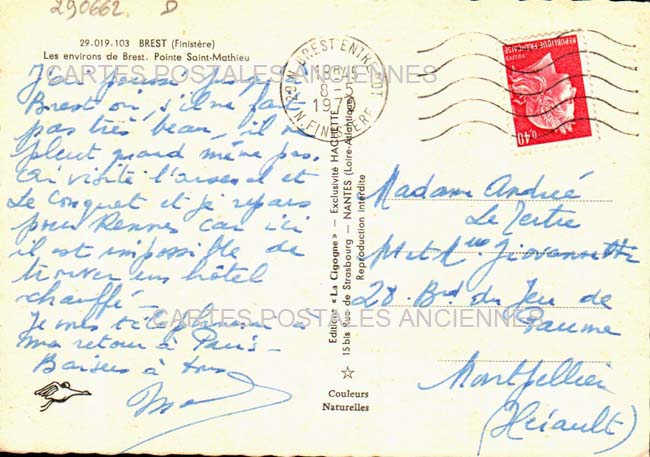 290662 D
29.019.103 BREST (Finistère)
Les environs de Brest. Pointe Saint-Mathieu
J'ai poussé jusqu'à
Brest où, s'il ne fait
pas très beau, il ne
pleut quand même pas.
Ai visité l'arsenal et
Le Conquet et je repars
pour Rennes car ici
il est impossible de
trouver un hôtel
chauffé.
Je vous téléphonerai à
mon retour à Paris.
Baisers à tous
CARTES POSTALES ANCIENNES
CARTES POSTALES ANCIENNES
Editions « La Cigogne » — Exclusivité HACHETTE
15 bis Rue de Strasbourg — NANTES (Loire-Atlantique)
Reproduction interdite
Couleurs
Naturelles
BREST ENTREPOT
8-5
N. FINISTERE
REPUBLIQUE FRANCAISE
POSTES
0,40
Madame André
Le Tertre
Met Mlle Giovannetti
28 Bd du Jeu de
Paume
Montpellier
(Hérault)